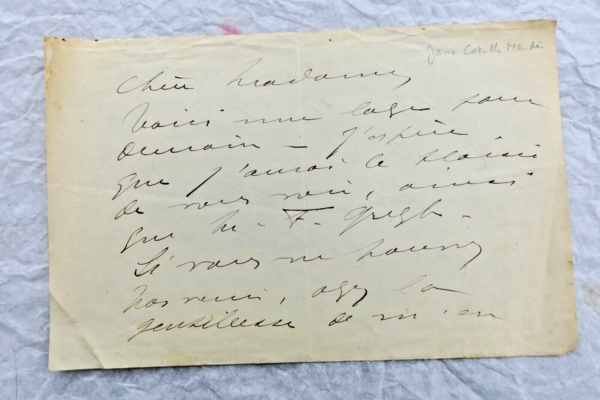 Jane Catulle Mendès
Chère Madame,
Voici une loge pour
demain - j'espère
que j'aurai le plaisir
de vous voir, ainsi
que M. F. Gregh -
Si vous ne pouviez
pas venir, ayez la
gentillesse de m'en